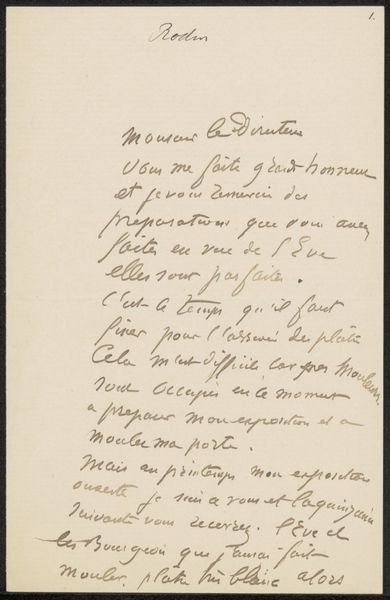 1.
Rodin
Monsieur le Directeur
Vous me faite grand honneur
et je vous remercie des
preparations que vous avez
faites en vue de l'Eve
elles sont parfaites.
C'est le temps qu'il faut
fixer pour l'arrivée des plâtres
Cela m'est difficile car mes Mouleurs
sont occupés en ce moment
a preparer mon exposition et a
mouler ma porte.
Mais au printemps mon exposition
ouverte je suis a vous et la quinzaine
suivante vous recevrez. l'Eve et
les Bourgeois que j'aurai fait
mouler. plâtre très blanc alors